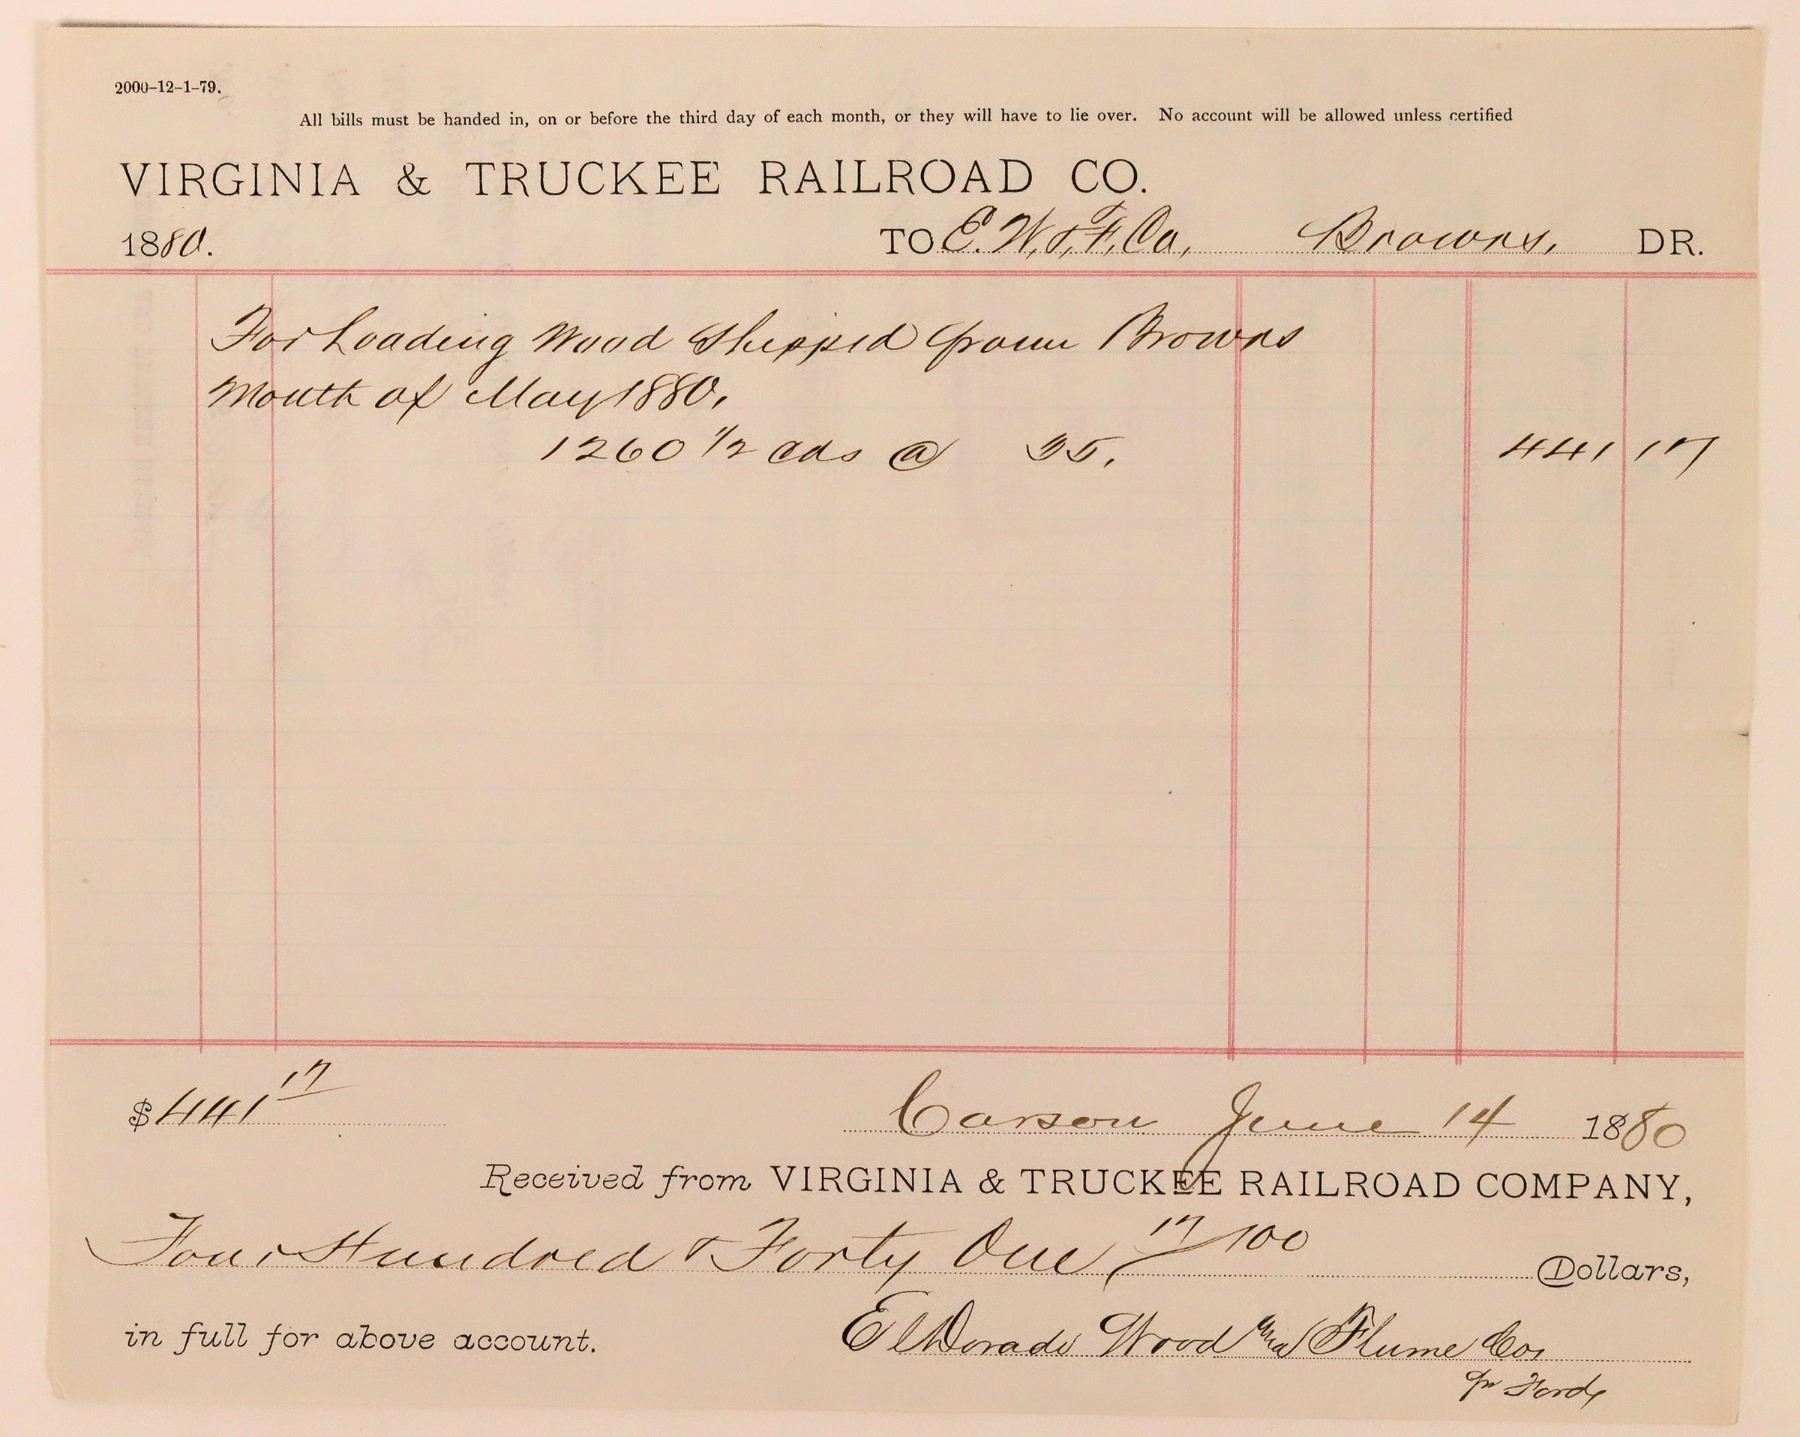 2000-12-1-79.
All bills must be handed in, on or before the third day of each month, or they will have to lie over. No account will be allowed unless certified
VIRGINIA & TRUCKEE RAILROAD CO.
1880. TO E. W. & F. Co, Browns, DR.
For Loading Wood Shipped from Browns
Month of May 1880,
1260 1/2 Cds @ 35. 441 17
$441 17 Carson June 14 1880
Received from VIRGINIA & TRUCKEE RAILROAD COMPANY,
Four Hundred & Forty One, 17/100 Dollars,
in full for above account. El Dorado Wood and Flume Co,
pr